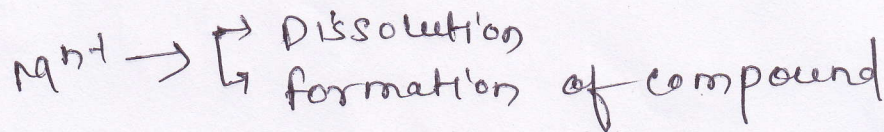 Mⁿ⁺ → Dissolution
formation of compound